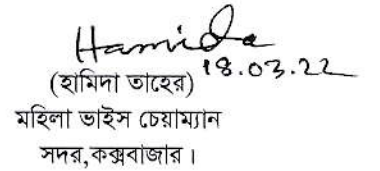 Hamida
18.03.22
(হামিদা তাহের)
মহিলা ভাইস চেয়াম্যান
সদর,কক্সবাজার।